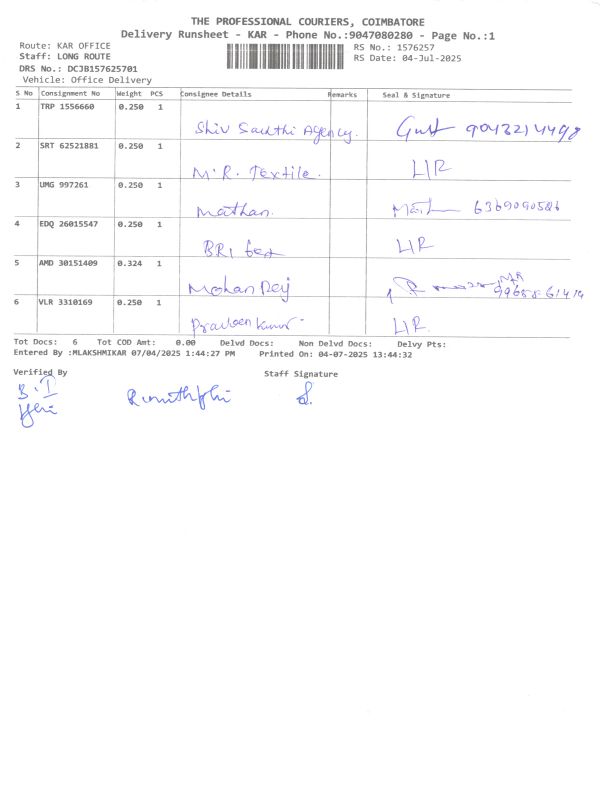 THE PROFESSIONAL COURIERS, COIMBATORE
Delivery Runsheet - KAR - Phone No.:9047080280 - Page No.:1
Route: KAR OFFICE
Staff: LONG ROUTE
DRS No.: DCJB157625701
Vehicle: Office Delivery
RS No.: 1576257
RS Date: 04-Jul-2025
S No Consignment No Weight PCS Consignee Details Remarks Seal & Signature
1 TRP 1556660 0.250 1
Shiv Sakthi Agency.
2 SRT 62521881 0.250 1
M.R. Textile. LIR
3 UMG 997261 0.250 1
Mathan. 6369090586
4 EDQ 26015547 0.250 1
BRI tex LIR
5 AMD 30151409 0.324 1
Mohan Raj
6 VLR 3310169 0.250 1
Praveen Kumar LIR
Tot Docs: 6 Tot COD Amt: 0.00 Delvd Docs: Non Delvd Docs: Delvy Pts:
Entered By :MLAKSHMIKAR 07/04/2025 1:44:27 PM Printed On: 04-07-2025 13:44:32
Verified By Staff Signature